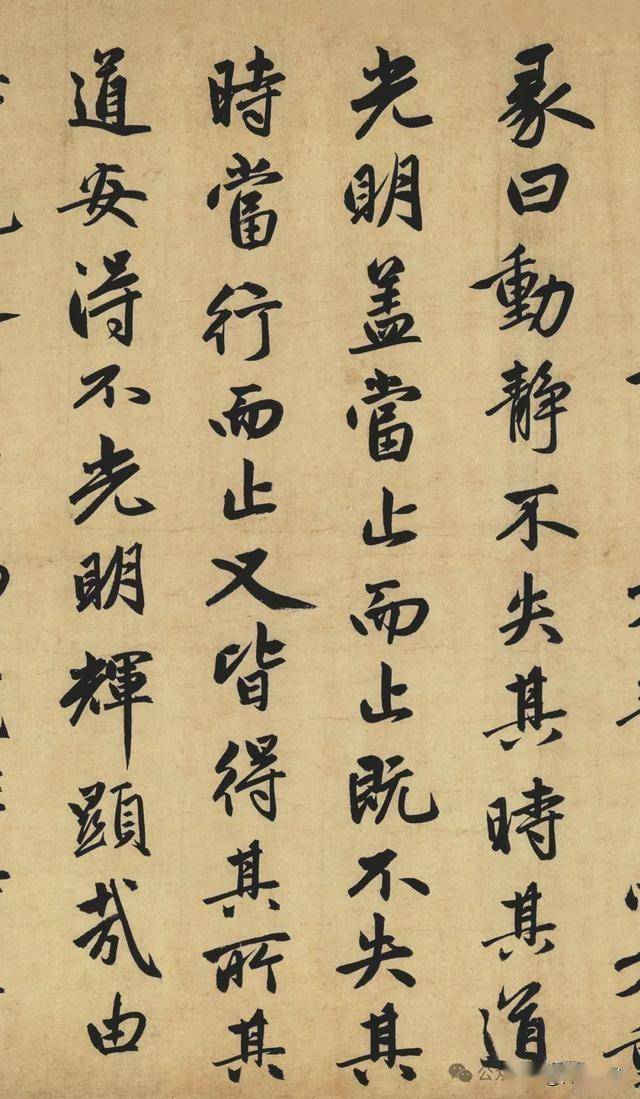 彖曰動静不失其時其道
光明盖當止而止既不失其
時當行而止又皆得其所其
道安得不光明輝顯哉由
公众